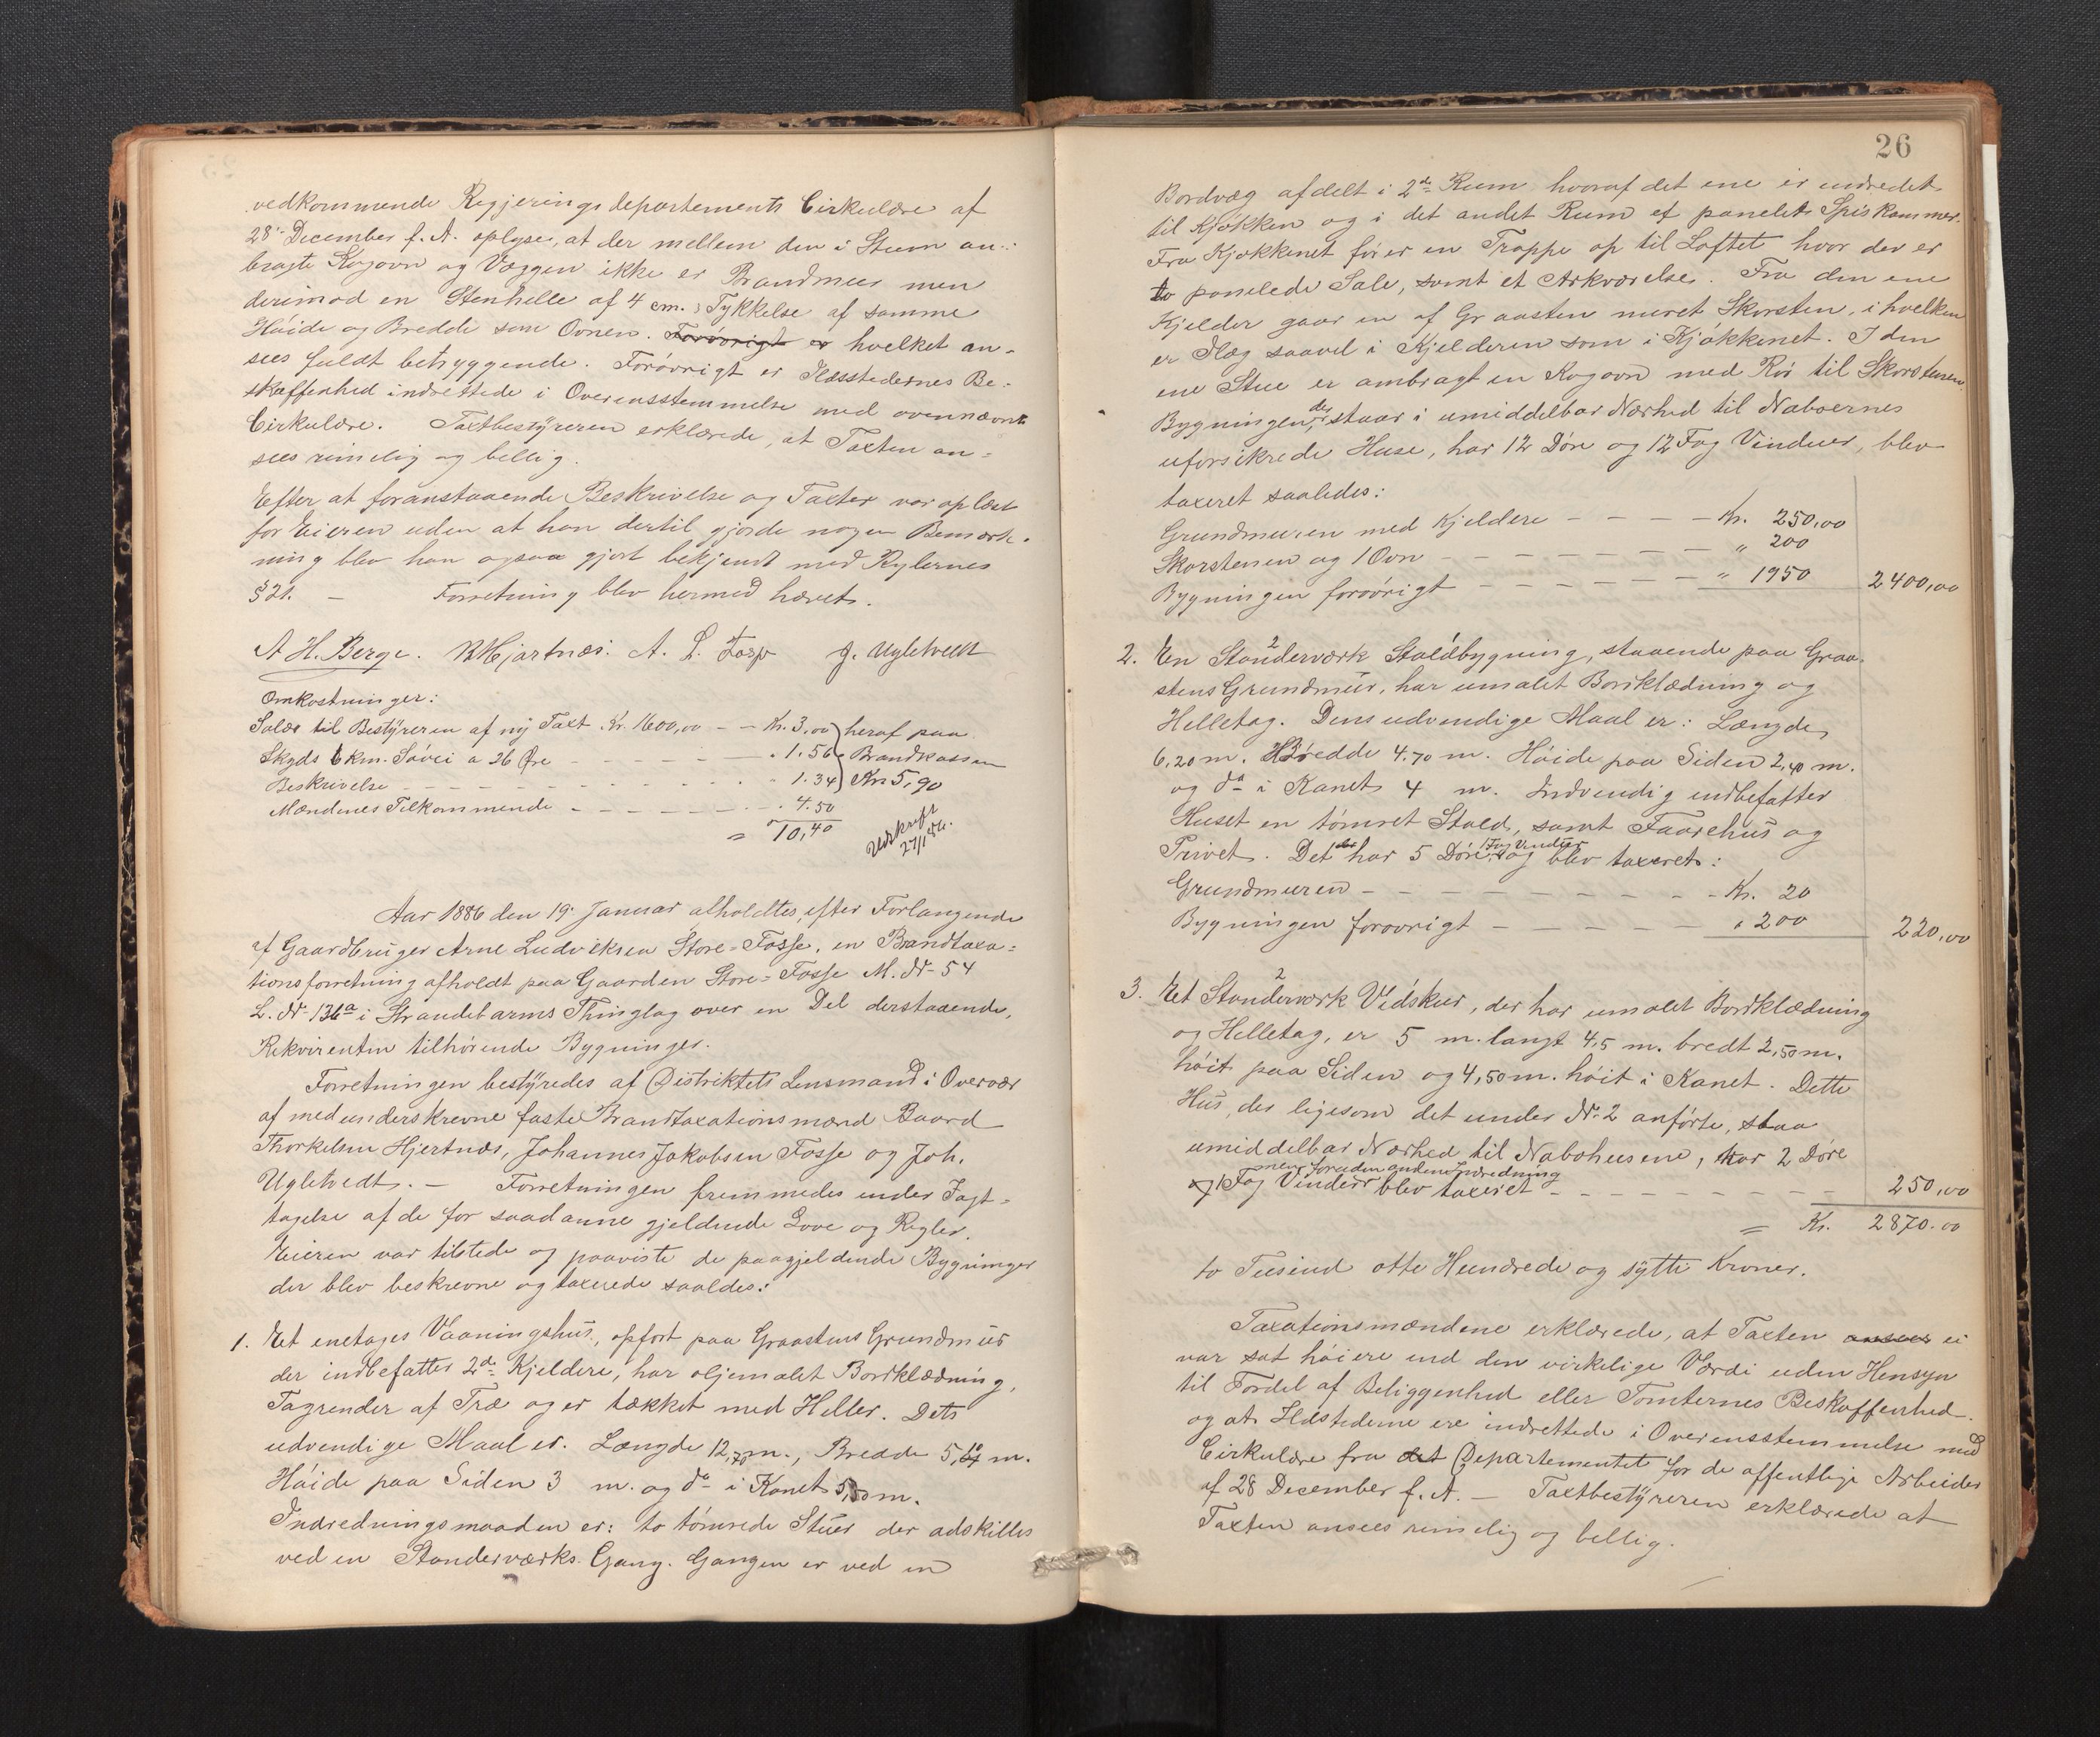 vedkommende Regjeringsdepartements Cirkulære af
28de December f. A. oplyses, at der mellem den i Stuen an-
bragte Kogovn og Væggen ikke er Brandmur men
derimod en Stenhelle af 4 cm.s Tykkelse af samme
Høide og Bredde som Ovnen. Forøvrigt er hvilket an-
sees fuldt betryggende. Forøvrigt er Ildstedernes Be-
skaffenhed indrettede i Overensstemmelse med ovennævnte
Cirkulære. Taxtbestyreren erklærede, at Taxten an-
sees rimelig og billig.
Efter at foranstaaende Beskrivelse og Taxter var oplæst
for Eieren uden at han dertil gjorde nogen Bemærk-
ning blev han ogsaa gjort bekjendt med Reglernes
§ 21. - Forretning blev hermed hævet.
A H. Berge. B Hjartnæs. A. L. Fosse J. Ugletvedt
Omkostninger:
Salær til Bestyreren af ny Taxt Kr. 1600,00 - - Kr. 3,00 heraf paa
Skyds 6 km. Søvei a 26 Øre - - - - " 1.56 Brandkassen
Beskrivelse - - - - " 1.34 Kr 5,90
Mændenes Tilkommende - - - - " 4.50
= 10,40
Udskrift
27/1 86.
Aar 1886 den 19. Januar afholdtes, efter Forlangende
af Gaardbruger Arne Ludviksen Store-Fosse, en Brandtaxa-
tionsforretning afholdt paa Gaarden Store-Fosse M. Nr 54
L. Nr 136a i Strandebarms Thinglag over en Del derstaaende,
Rekvirenten tilhørende Bygninger.
Forretningen bestyredes af Distriktets Lensmand i Overvær
af medunderskrevne faste Brandtaxationsmænd Baard
Thorkelsen Hjertnæs, Johannes Jakobsen Fosse og Joh.
Ugletvedt. - Forretningen fremmedes under Iagt-
tagelse af de for saadanne gjeldende Love og Regler.
Eieren var tilstede og paaviste de paagjeldende Bygninger
der blev beskrevne og taxerede saaldes:
1. Et enetages Vaaningshus, opført paa Graastens Grundmur
der indbefatter 2de Kjeldere, har oljemalet Bordklædning,
Tagrender af Træ og er tækket med Heller. Dets
udvendige Maal er. Længde 12,70 m., Bredde 5,10 m.
Høide paa Siden 3 m. og do i Kanet 5,50 m.
Indredningsmaaden er: to tømrede Stuer der adskilles
ved en Standerværks Gang. Gangen er ved en
26
Bordvæg afdelt i 2de Rum hvoraf det ene er indredet
til Kjøkken og i det andet Rum et panelet Spiskammer.
Fra Kjøkkenet fører en Trappe op til Loftet hvor der er
to panelede Sale, samt et Arkværelse. Fra den ene
Kjelder gaar en af Graasten muret Skorsten, i hvilken
er Ilæg saavel i Kjelderen som i Kjøkkenet. I den
ene Stue er ambragt en Kogovn med Rør til Skorstenen
Bygningen, der staar i umiddelbar Nærhed til Naboernes
uforsikrede Huse, har 12 Døre og 12 Fag Vinduer, blev
taxeret saaledes:
Grundmuren med Kjeldere - - - - Kr. 250,00
Skorstenen og 1 Ovn - - - - - - " 200
Bygningen forøvrigt - - - - - - " 1950 2400,00
2. En Standerværk 2 Staldbygning, staaende paa Graa-
stens Grundmur, har umalet Bordklædning og
Helletag. Dens udvendige Maal er: Længde
6,20 m. Bredde 4.70 m. Høide paa Siden 2,40 m.
og do i Kanet 4 m. Indvendig indbefatter
Huset en tømret Stald, samt Faarehus og
Privet. Det har 5 Døre, 1 Fag Vinduer og blev taxeret:
Grundmuren - - - - - - - - Kr. 20
Bygningen forøvrigt - - - - - " 200 220,00
3. Et Standerværk 2 Vedskur, der har umalet Bordklædning
og Helletag, er 5 m. langt 4,5 m. bredt 2,50 m.
høit paa Siden og 4,50 m. høit i Kanet. Dette
Hus, der ligesom det under Nr 2 anførte, staa
umiddelbar Nærhed til Nabohusene, har 2 Døre
men foruden anden Indredning
og 1 Fag Vinduer blev taxeret - - - - - - - - 250,00
= Kr. 2870.00
to Tusind otte Hundrede og sytti Kroner.
Taxationsmændene erklærede, at Taxten ansees ei
var sat høiere end den virkelige Værdi uden Hensyn
til Fordel af Beliggenhed eller Tomternes Beskaffenhed
og at Ildstederne ere indrettede i Overensstemmelse med
Cirkulære fra det Departementet for de offentlige Arbeider
af 28 December f. A. - Taxtbestyreren erklærede at
Taxten ansees rimelig og billig.